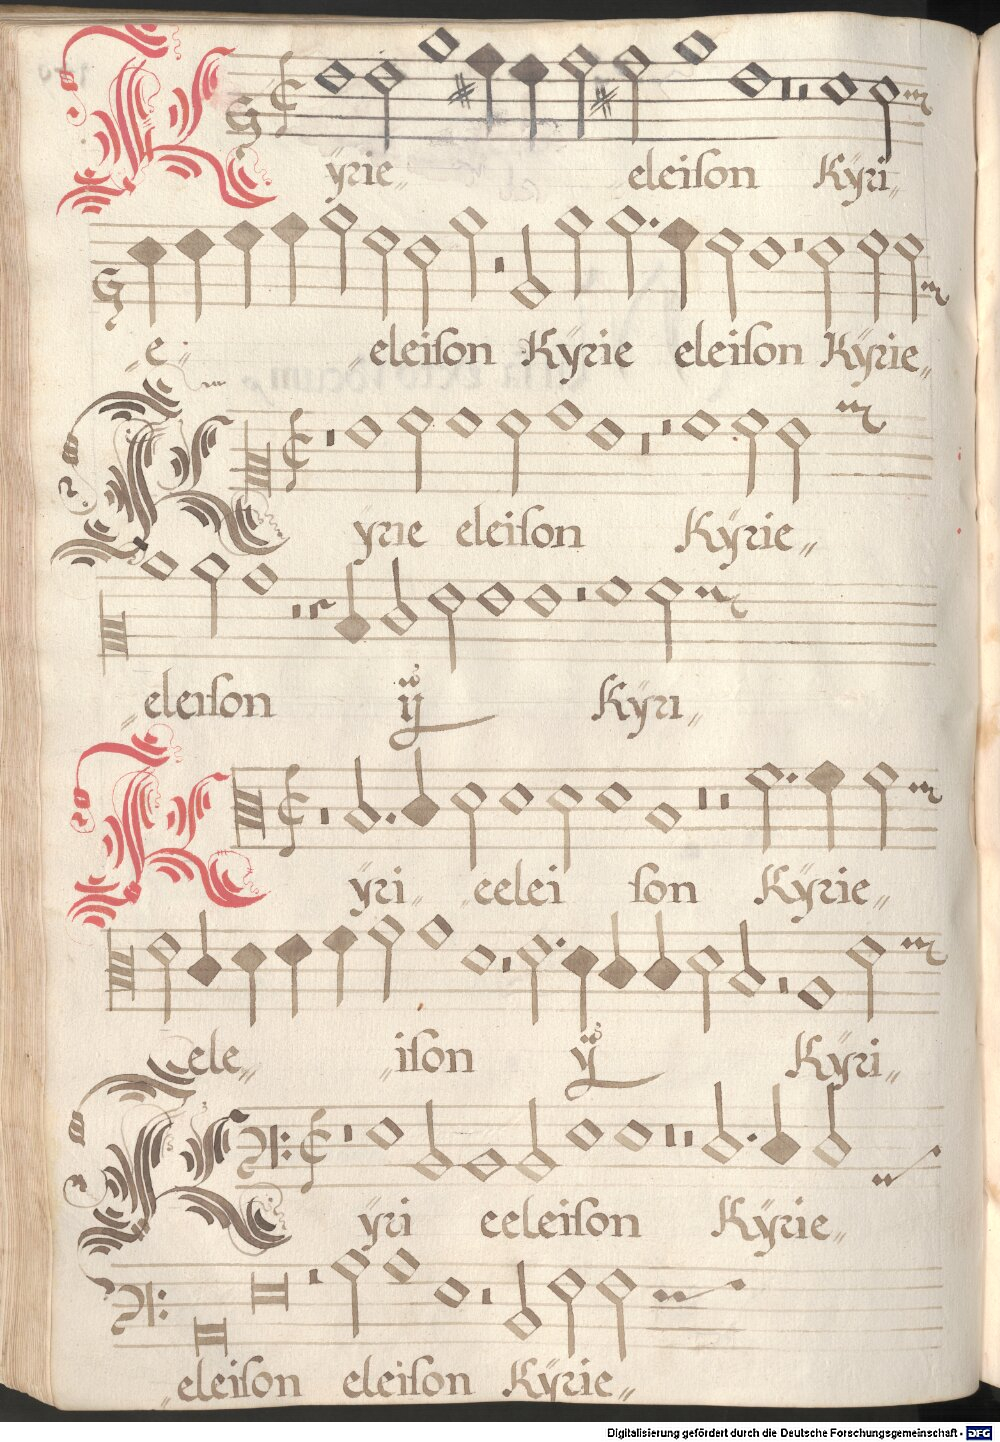 Kÿrie„ eleiſon Kÿri„
„e„ eleiſon Kÿrie eleiſon Kÿrie„
Kÿrie eleiſon Kÿrie„
„eleiſon ij Kÿri„
Kÿri„ „eelei ſon Kÿrie„
ele„ „iſon ij Kÿri„
Kÿri eeleiſon Kÿrie„
„eleiſon eleiſon Kÿrie„
Digitalisierung gefördert durch die Deutsche Forschungsgemeinschaft - DFG